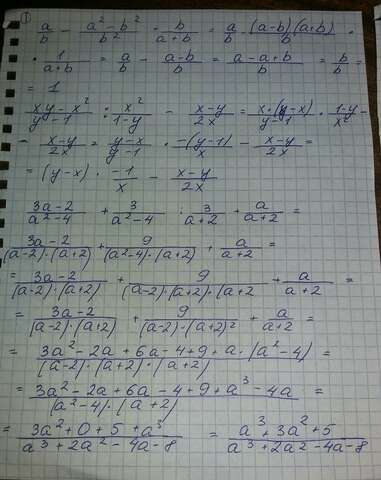 ①
a/b - (a² - b²)/b² · b/(a+b) = a/b · (a-b)(a+b)/b ·
· 1/(a+b) = a/b - (a-b)/b = (a-a+b)/b = b/b =
= 1
(xy - x²)/(y-1) : x²/(1-y) - (x-y)/2x = x·(y-x)/(y-1) · (1-y)/x² -
- (x-y)/2x = (y-x)/(y-1) · -(y-1)/x - (x-y)/2x =
= (y-x) · -1/x - (x-y)/2x
(3a-2)/(a²-4) + 3/(a²-4) · 3/(a+2) + a/(a+2) =
(3a-2)/((a-2)·(a+2)) + 9/((a²-4)·(a+2)) + a/(a+2) =
= (3a-2)/((a-2)·(a+2)) + 9/((a-2)·(a+2)·(a+2) + a/(a+2) =
= (3a-2)/((a-2)·(a+2)) + 9/((a-2)·(a+2)²) + a/(a+2) =
= (3a² - 2a + 6a - 4 + 9 + a·(a²-4))/((a-2)·(a+2)·(a+2)) =
= (3a² - 2a + 6a - 4 + 9 + a³ - 4a)/((a²-4)·(a+2)) =
= (3a² + 0 + 5 + a³)/(a³ + 2a² - 4a - 8) = (a³ + 3a² + 5)/(a³ + 2a² - 4a - 8)